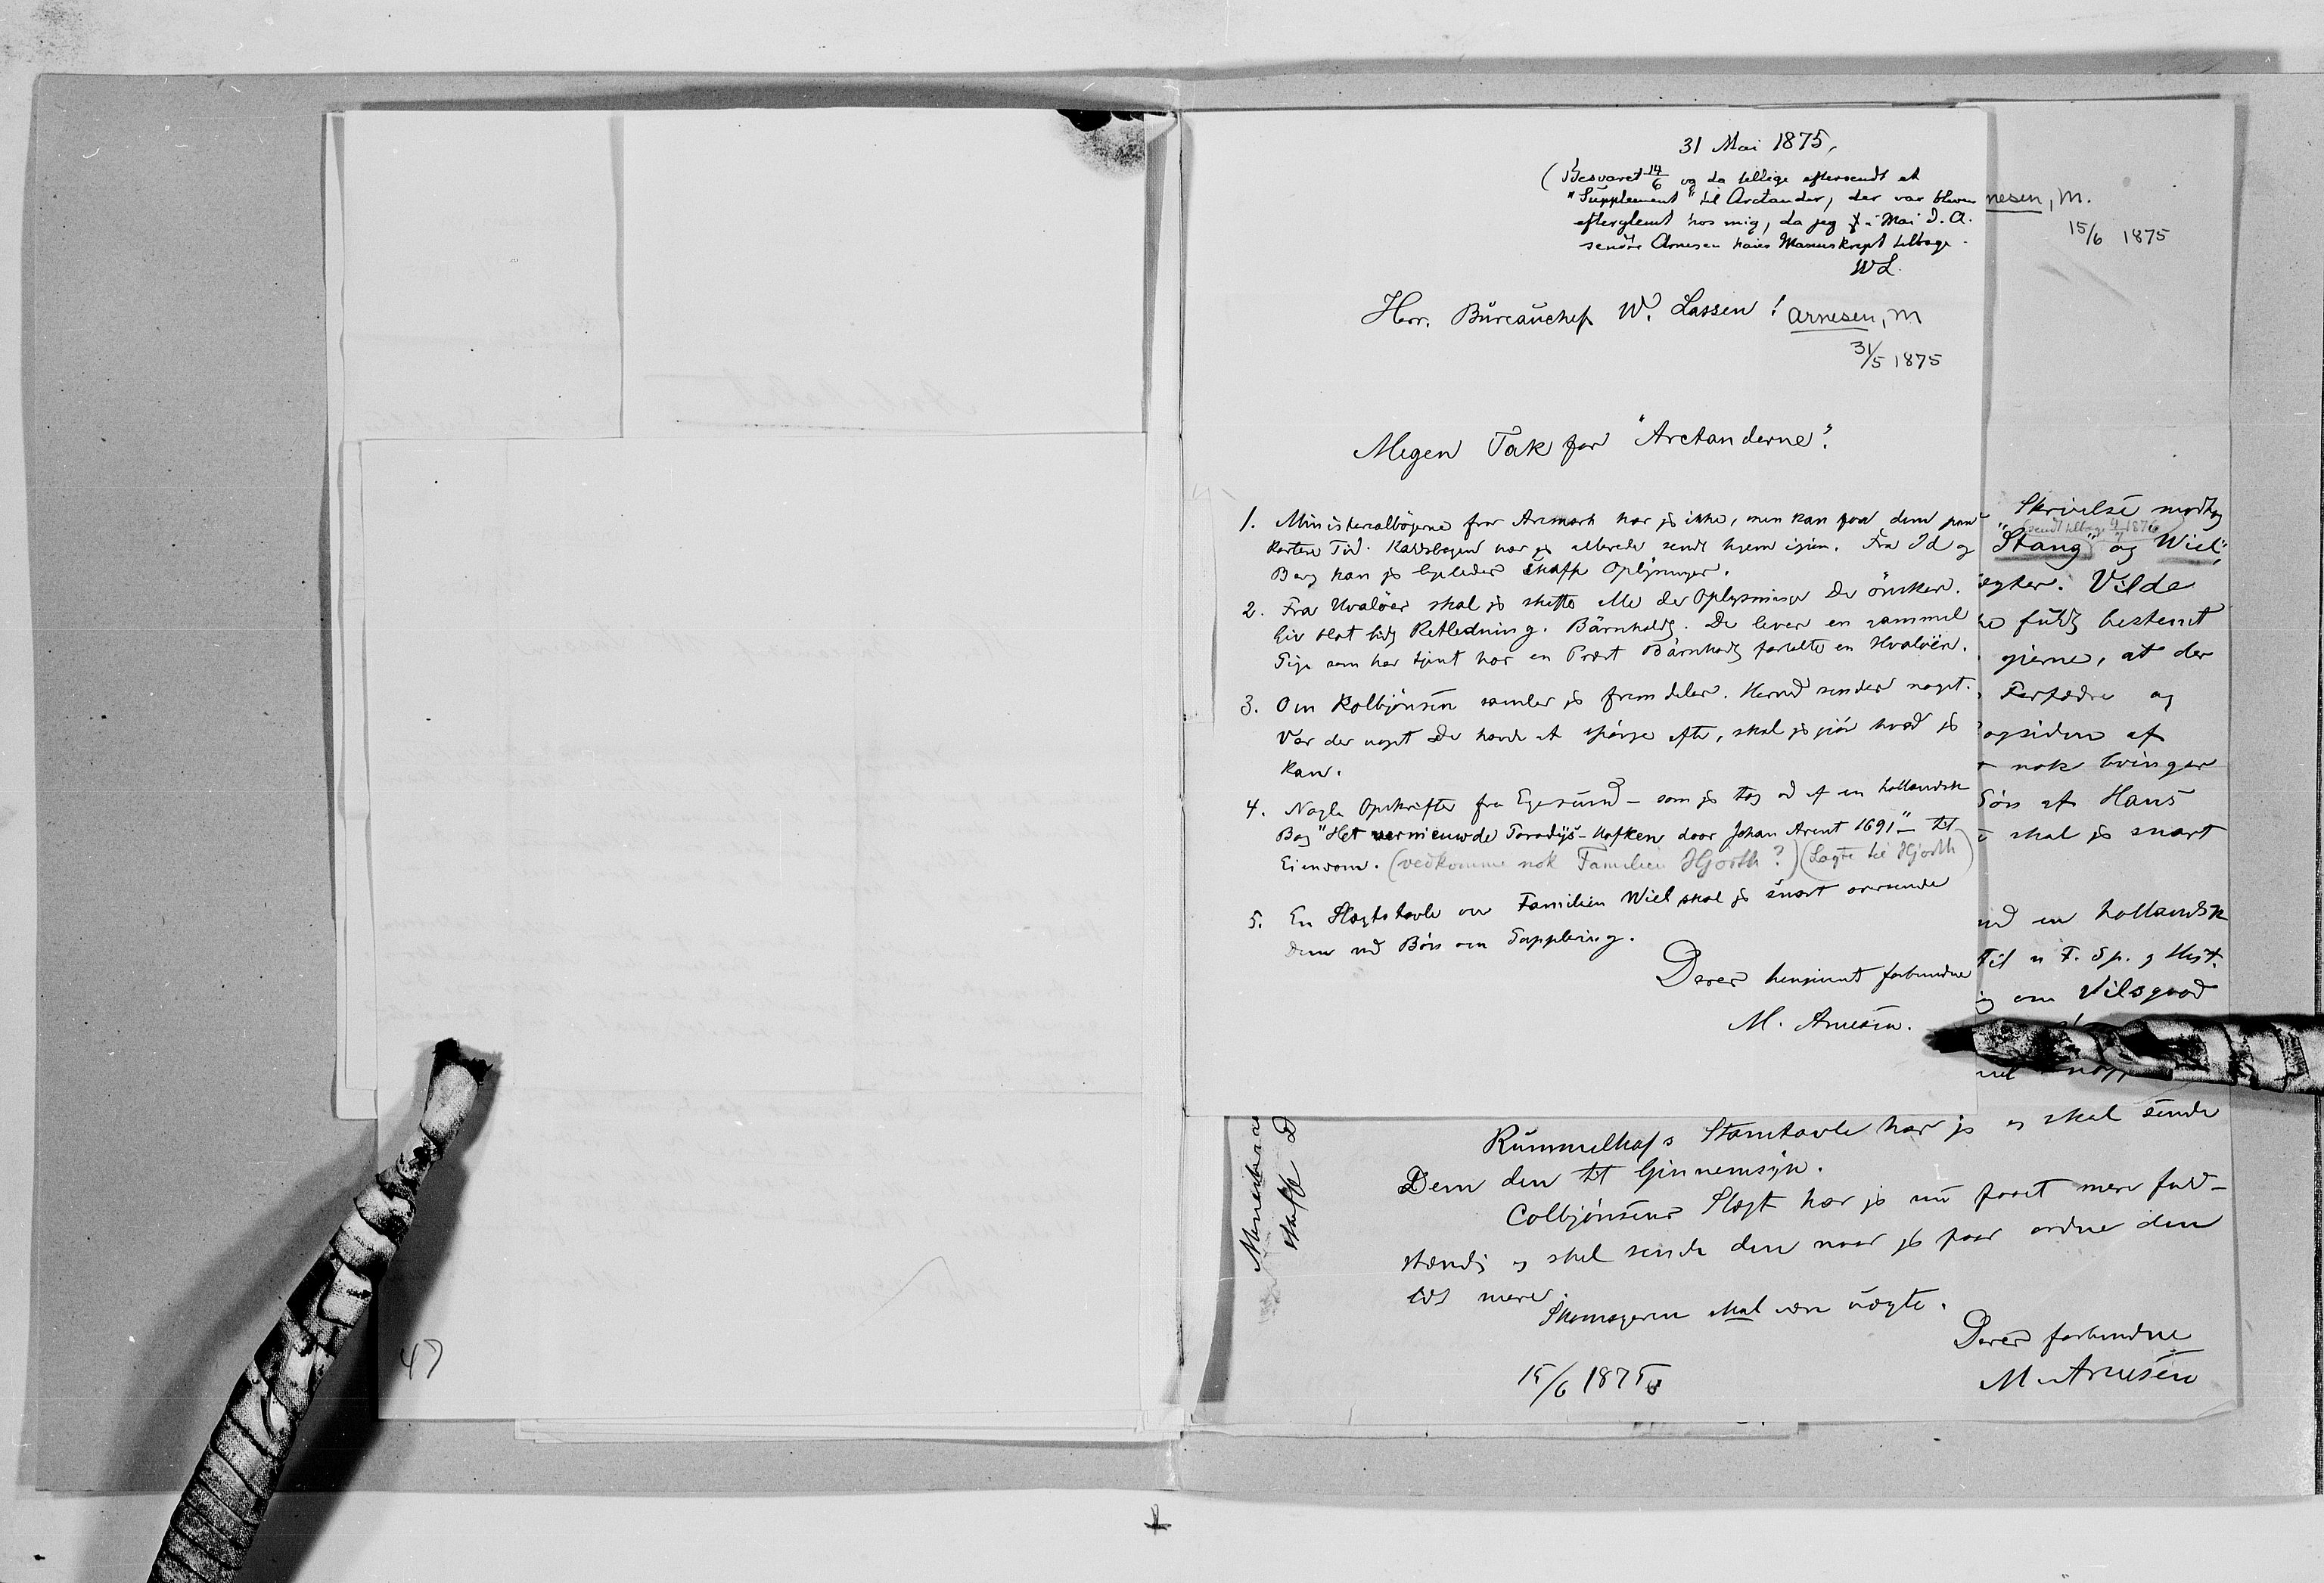 31 Mai 1875.
(Besvaret 14/6 og da tillige eftersendt et
"Supplement" til Arctander, der var bleven
efterglemt hos mig, da jeg i Mai d. A.
sendte Arnesen hans Manuskript tilbage.
WL.
Herr. Büreauchef W. Lassen!
Arnesen, M
31/5 1875
Megen Tak for "Arctanderne".
1. Ministerialbøgerne fra Aremark har jeg ikke, men kan faa dem paa
kortere Tid. Kaldsbogen har jeg allerede sendt hjem igien. Fra Id og
Berg kan jeg ligeledes skaffe Oplysninger.
2. Fra Hvaløer skal jeg skaffe alle de Oplysninger De ønsker.
Giv blot lidt Retledning. Bärnholdt. De lever en gammel
Pige som har tjent hos en Præst Bärnholdt fortalte en Hvaløer.
3. Om Kolbjørnsen samler jeg fremdeles. Herved sender noget.
Var der noget De havde at spørge efter, skal jeg gjøre hvad jeg
kan.
4. Nogle Opskrifter fra Egersund – som jeg tog ud af en hollandsk
Bog "Het vernieuwde Paradijs-Hofken door Johan Arent 1691" – til
Eiendom. (vedkomme nok Familien Hjorth?) (Lagte til Hjorth)
5. En Slægtstavle over Familien Wiel skal jeg snart oversende
Dem med Bøn om Supplering.
Deres hengivent forbundne
M. Arnesen.
nesen, M.
15/6 1875
Skrivelse modtog
(sendt tilbage 4/7 1876)
"Stang" og Wiel",
egter. Vilde
fuldt bestemt
gjerne, at der
Forfædre og
ogsiden af
nok bringer
Søn af Hans
skal jeg snart
en hollandsk
Til n F. Sp. og Hist.
om Vilsgod
skaffe D
Rümmelhofs Stamtavle har jeg og skal sende
Dem den til Gjennemsyn.
Colbjørnsens Slægt har jeg nu faaet mere fuld-
stændig og skal sende den naar jeg faar ordne den
lidt mere.
Skomageren skal være uægte.
Deres forbundne
M. Arnesen
15/6 1875
47